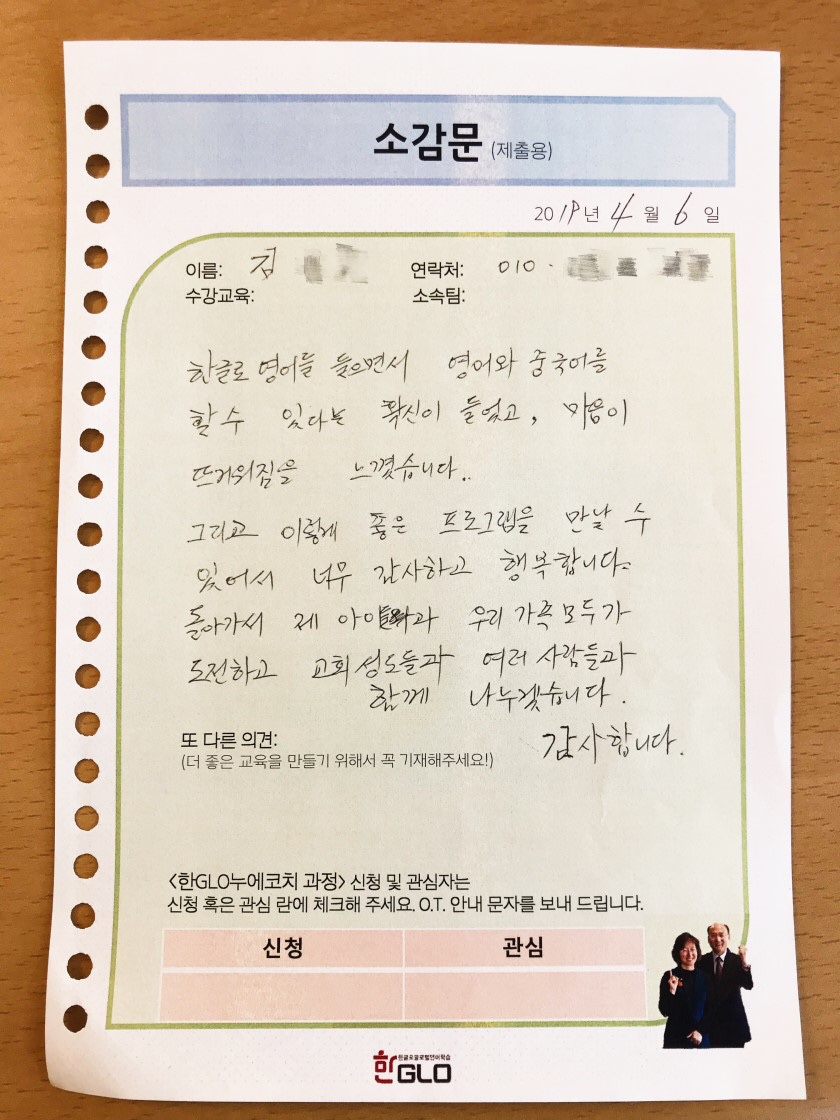 소감문 (제출용)
2019년 4월 6일
이름: 김 연락처: 010 -
수강교육: 소속팀:
한글로 영어를 들으면서 영어와 중국어를
할 수 있다는 확신이 들었고, 마음이
뜨거워짐을 느꼈습니다..
그리고 이렇게 좋은 프로그램을 만날 수
있어서 너무 감사하고 행복합니다.
돌아가서 제 과 우리 가족 모두가
도전하고 교회 성도들과 여러 사람들과
함께 나누겠습니다.
감사합니다.
또 다른 의견:
(더 좋은 교육을 만들기 위해서 꼭 기재해주세요!)
<한GLO누에코치 과정> 신청 및 관심자는
신청 혹은 관심 란에 체크해 주세요. O.T. 안내 문자를 보내 드립니다.
신청 관심
한글로글로벌언어학습
한GLO